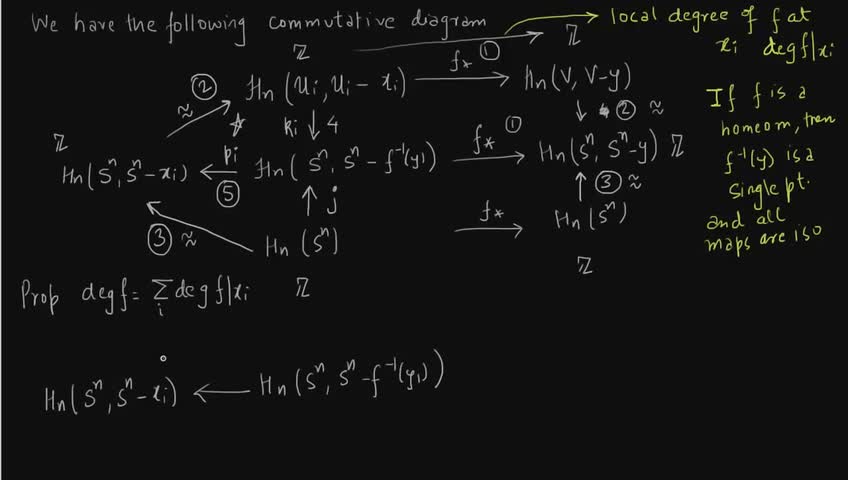 We have the following commutative diagram
local degree of f at
xi deg f|xi
ℤ ℤ
② ≈ Hn (Ui, Ui - xi) f* ① Hn (V, V-y)
ki ↓ 4 ↓ ② ≈
ℤ
Hn (S^n, S^n - xi) ← pi ⑤ Hn (S^n, S^n - f^-1(y)) f* ① → Hn (S^n, S^n - y) ℤ
↑ j ↑ ③ ≈
③ ≈ Hn (S^n) f* → Hn (S^n)
ℤ
If f is a
homeom, then
f^-1(y) is a
single pt.
and all
maps are iso
Prop deg f = Σ_i deg f|xi ℤ
Hn (S^n, S^n - xi) ← Hn (S^n, S^n - f^-1(y))